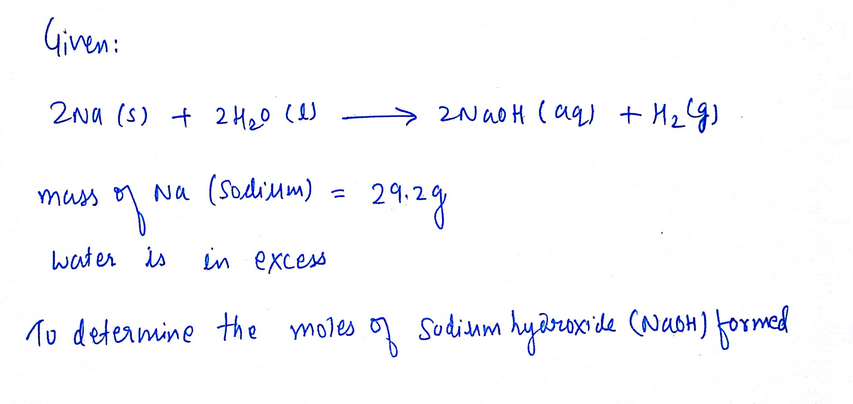 Given:
2Na (s) + 2H₂O (l) ⟶ 2NaOH (aq) + H₂(g)
mass of Na (Sodium) = 29.2g
water is in excess
To determine the moles of Sodium hydroxide (NaOH) formed